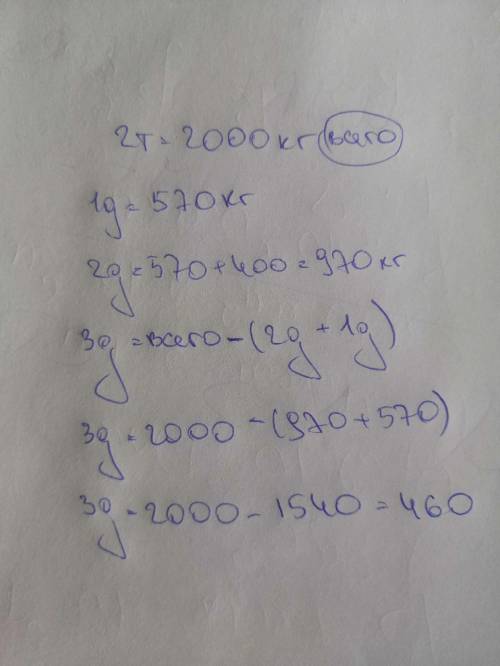 2т = 2000 кг (всего)
1д = 570 кг
2д = 570 + 400 = 970 кг
3д = всего - (2д + 1д)
3д = 2000 - (970 + 570)
3д = 2000 - 1540 = 460